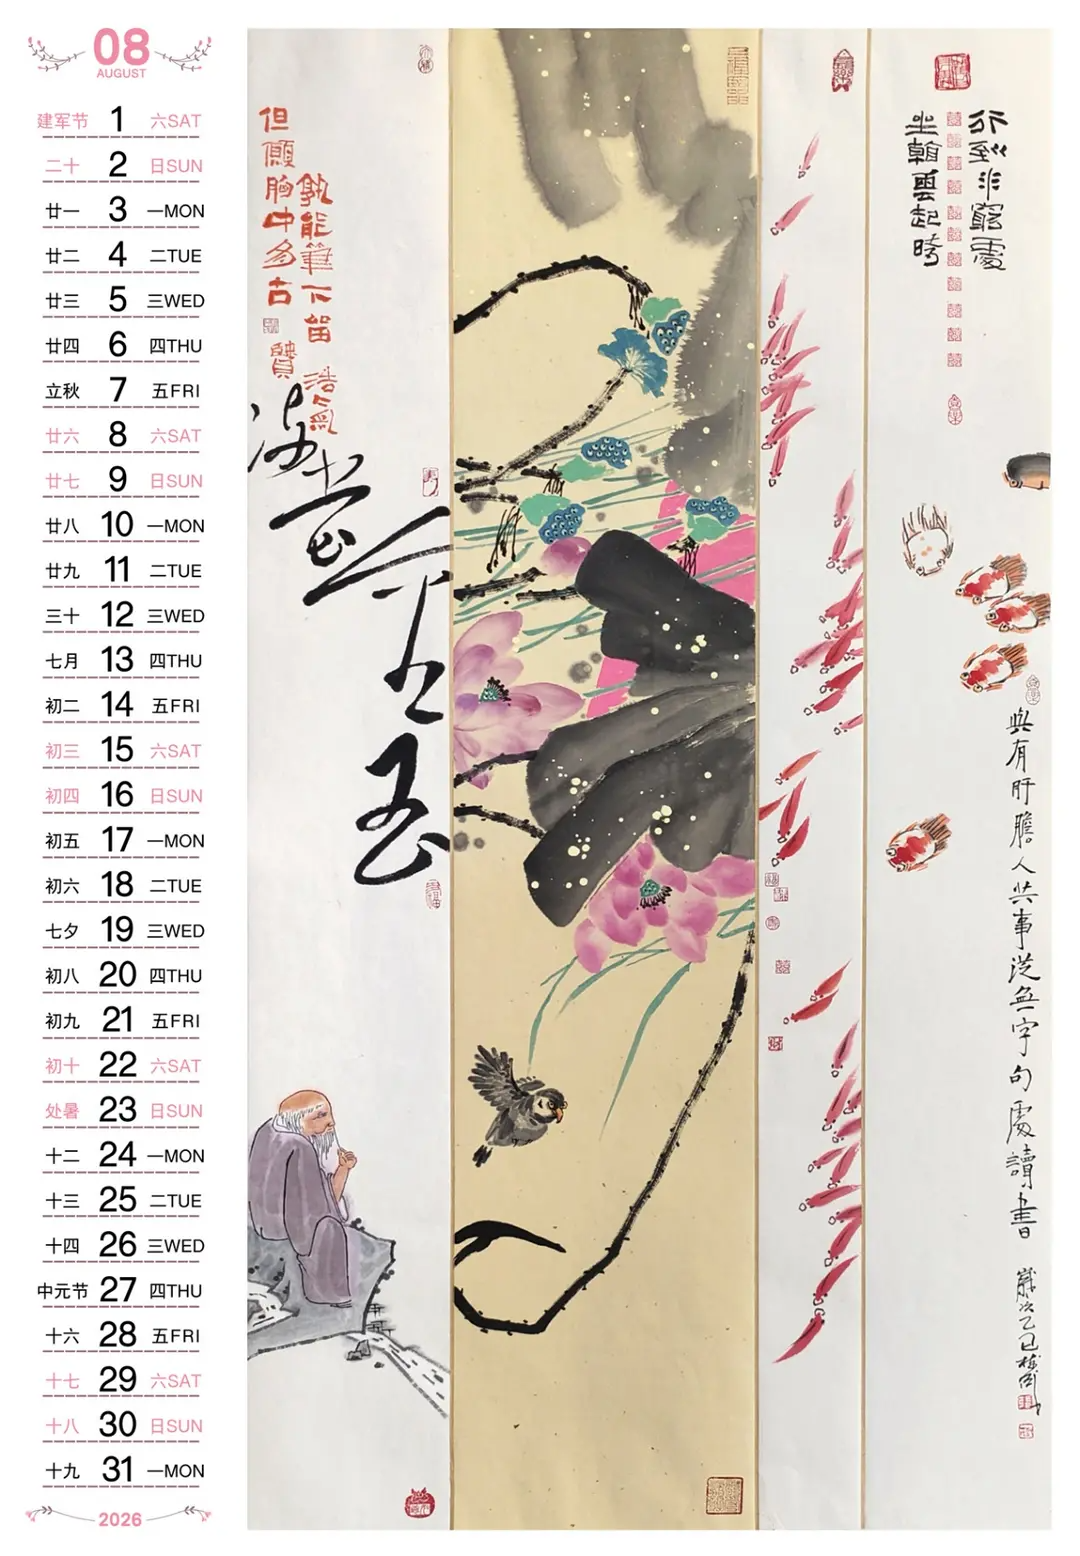 08
AUGUST
建军节 1 六SAT
二十 2 日SUN
廿一 3 一MON
廿二 4 二TUE
廿三 5 三WED
廿四 6 四THU
立秋 7 五FRI
廿六 8 六SAT
廿七 9 日SUN
廿八 10 一MON
廿九 11 二TUE
三十 12 三WED
七月 13 四THU
初二 14 五FRI
初三 15 六SAT
初四 16 日SUN
初五 17 一MON
初六 18 二TUE
七夕 19 三WED
初八 20 四THU
初九 21 五FRI
初十 22 六SAT
处暑 23 日SUN
十二 24 一MON
十三 25 二TUE
十四 26 三WED
中元节 27 四THU
十六 28 五FRI
十七 29 六SAT
十八 30 日SUN
十九 31 一MON
2026
行到水窮處
坐看雲起時
與有肝膽人共事從無字句處讀書
歲次乙巳
孰能筆下留浩氣
但願胸中多古
玉